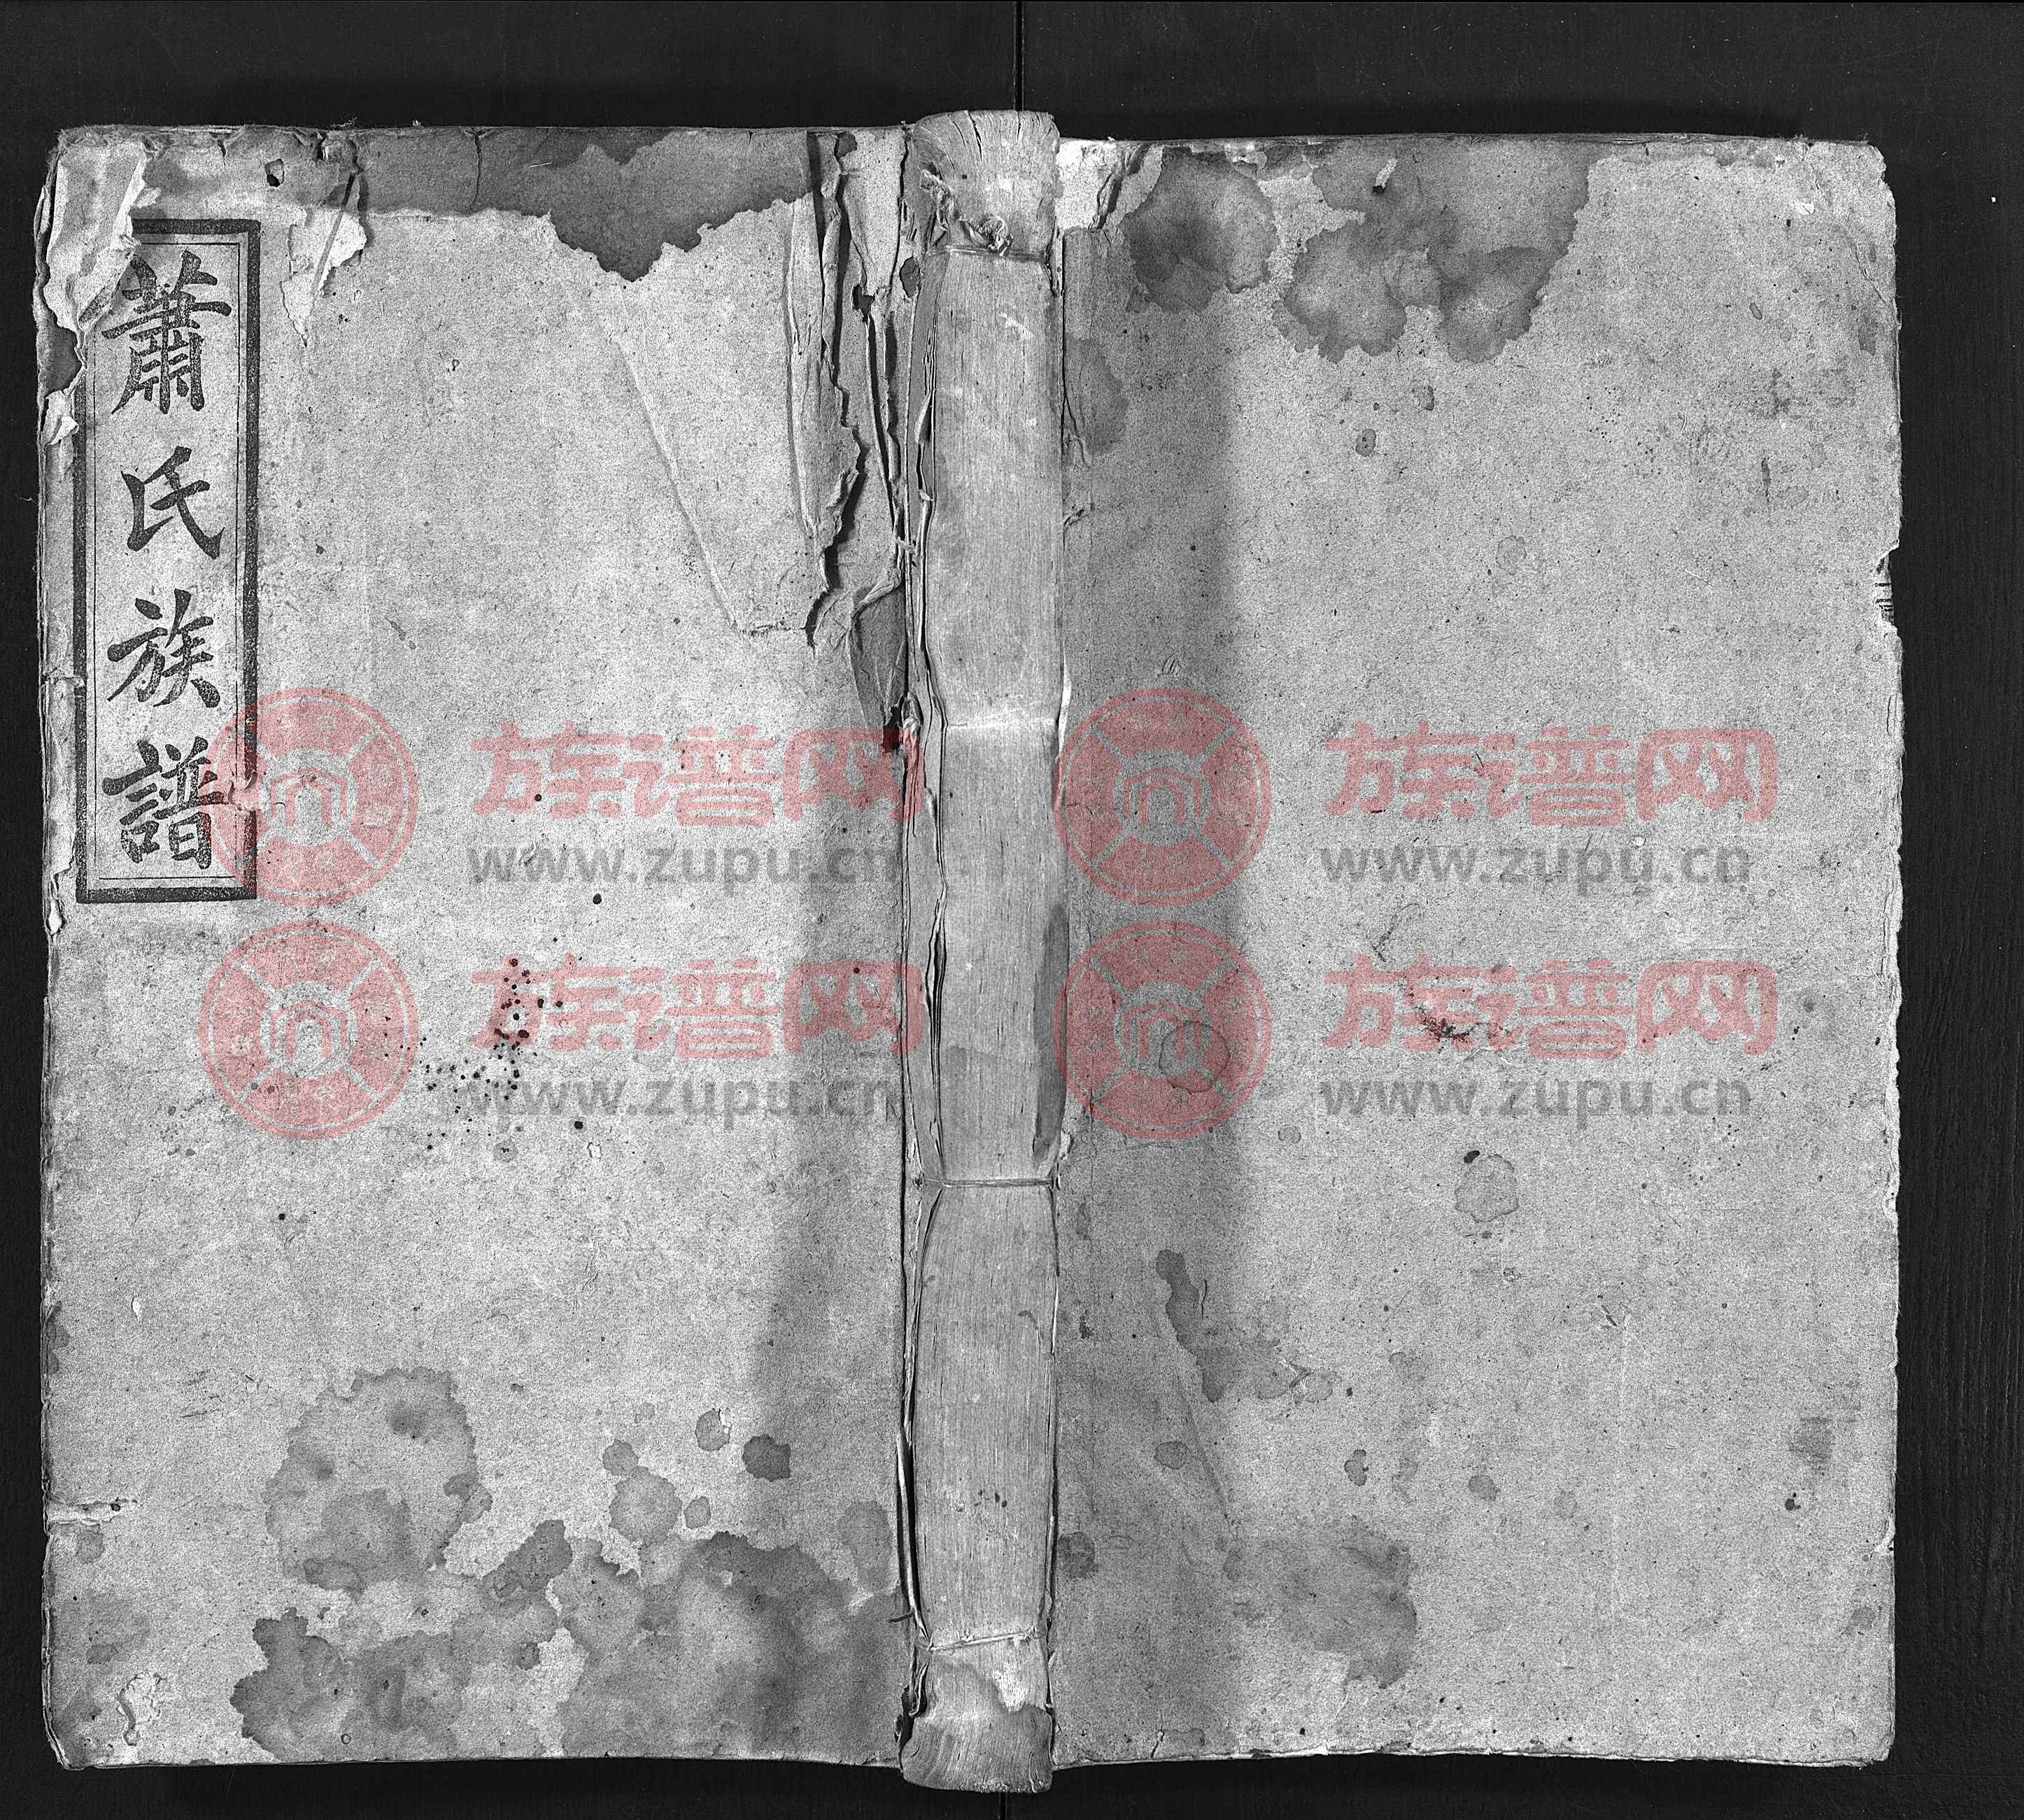 蕭氏族譜
族谱网
www.zupu.cn
族谱网
www.zupu.cn
族谱网
www.zupu.cn
族谱网
www.zupu.cn